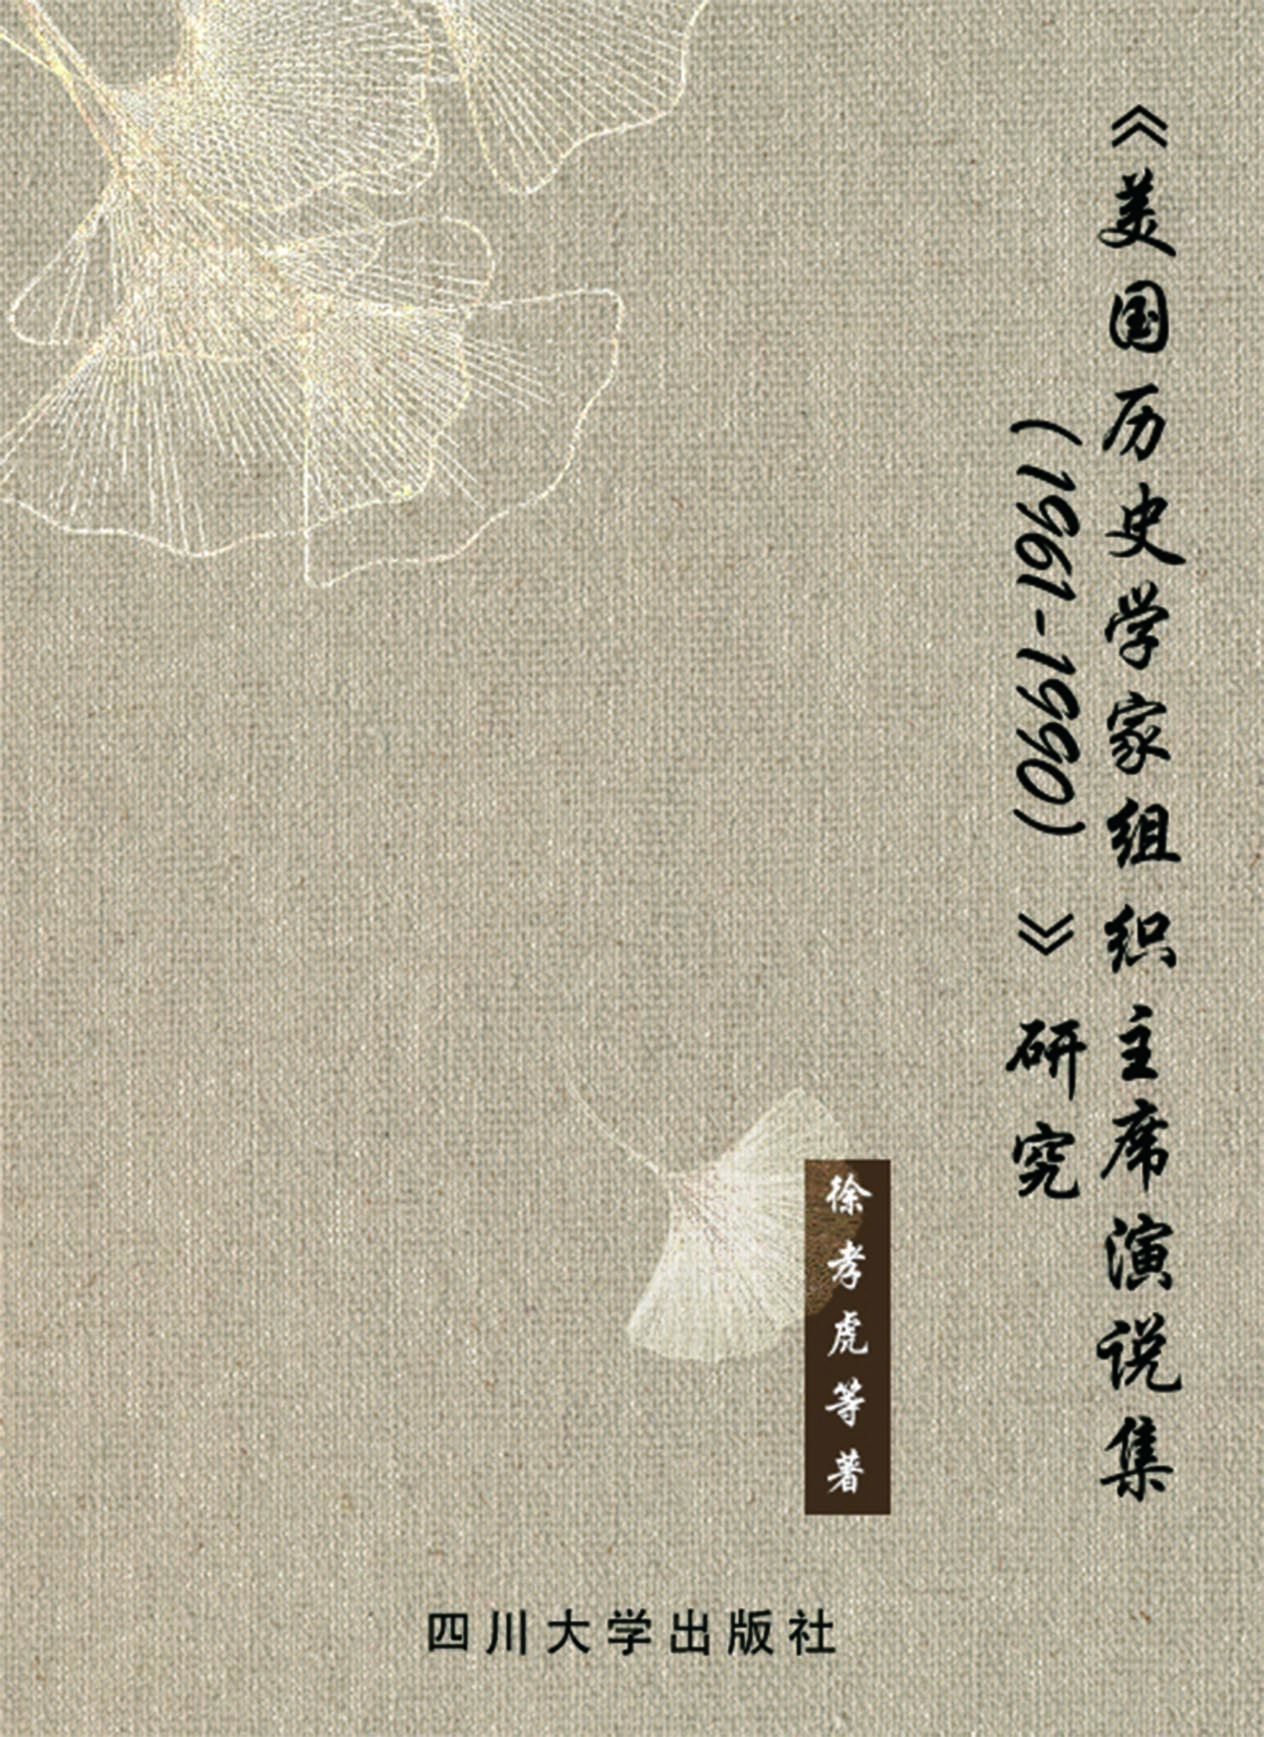 《美国历史学家组织主席演说集
(1961-1990)》研究
徐孝虎等著
四川大学出版社